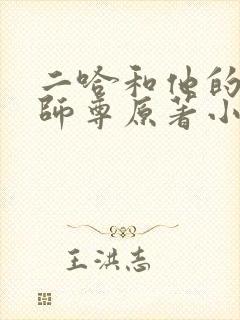 二哈和他的
師尊原著小
王洪志